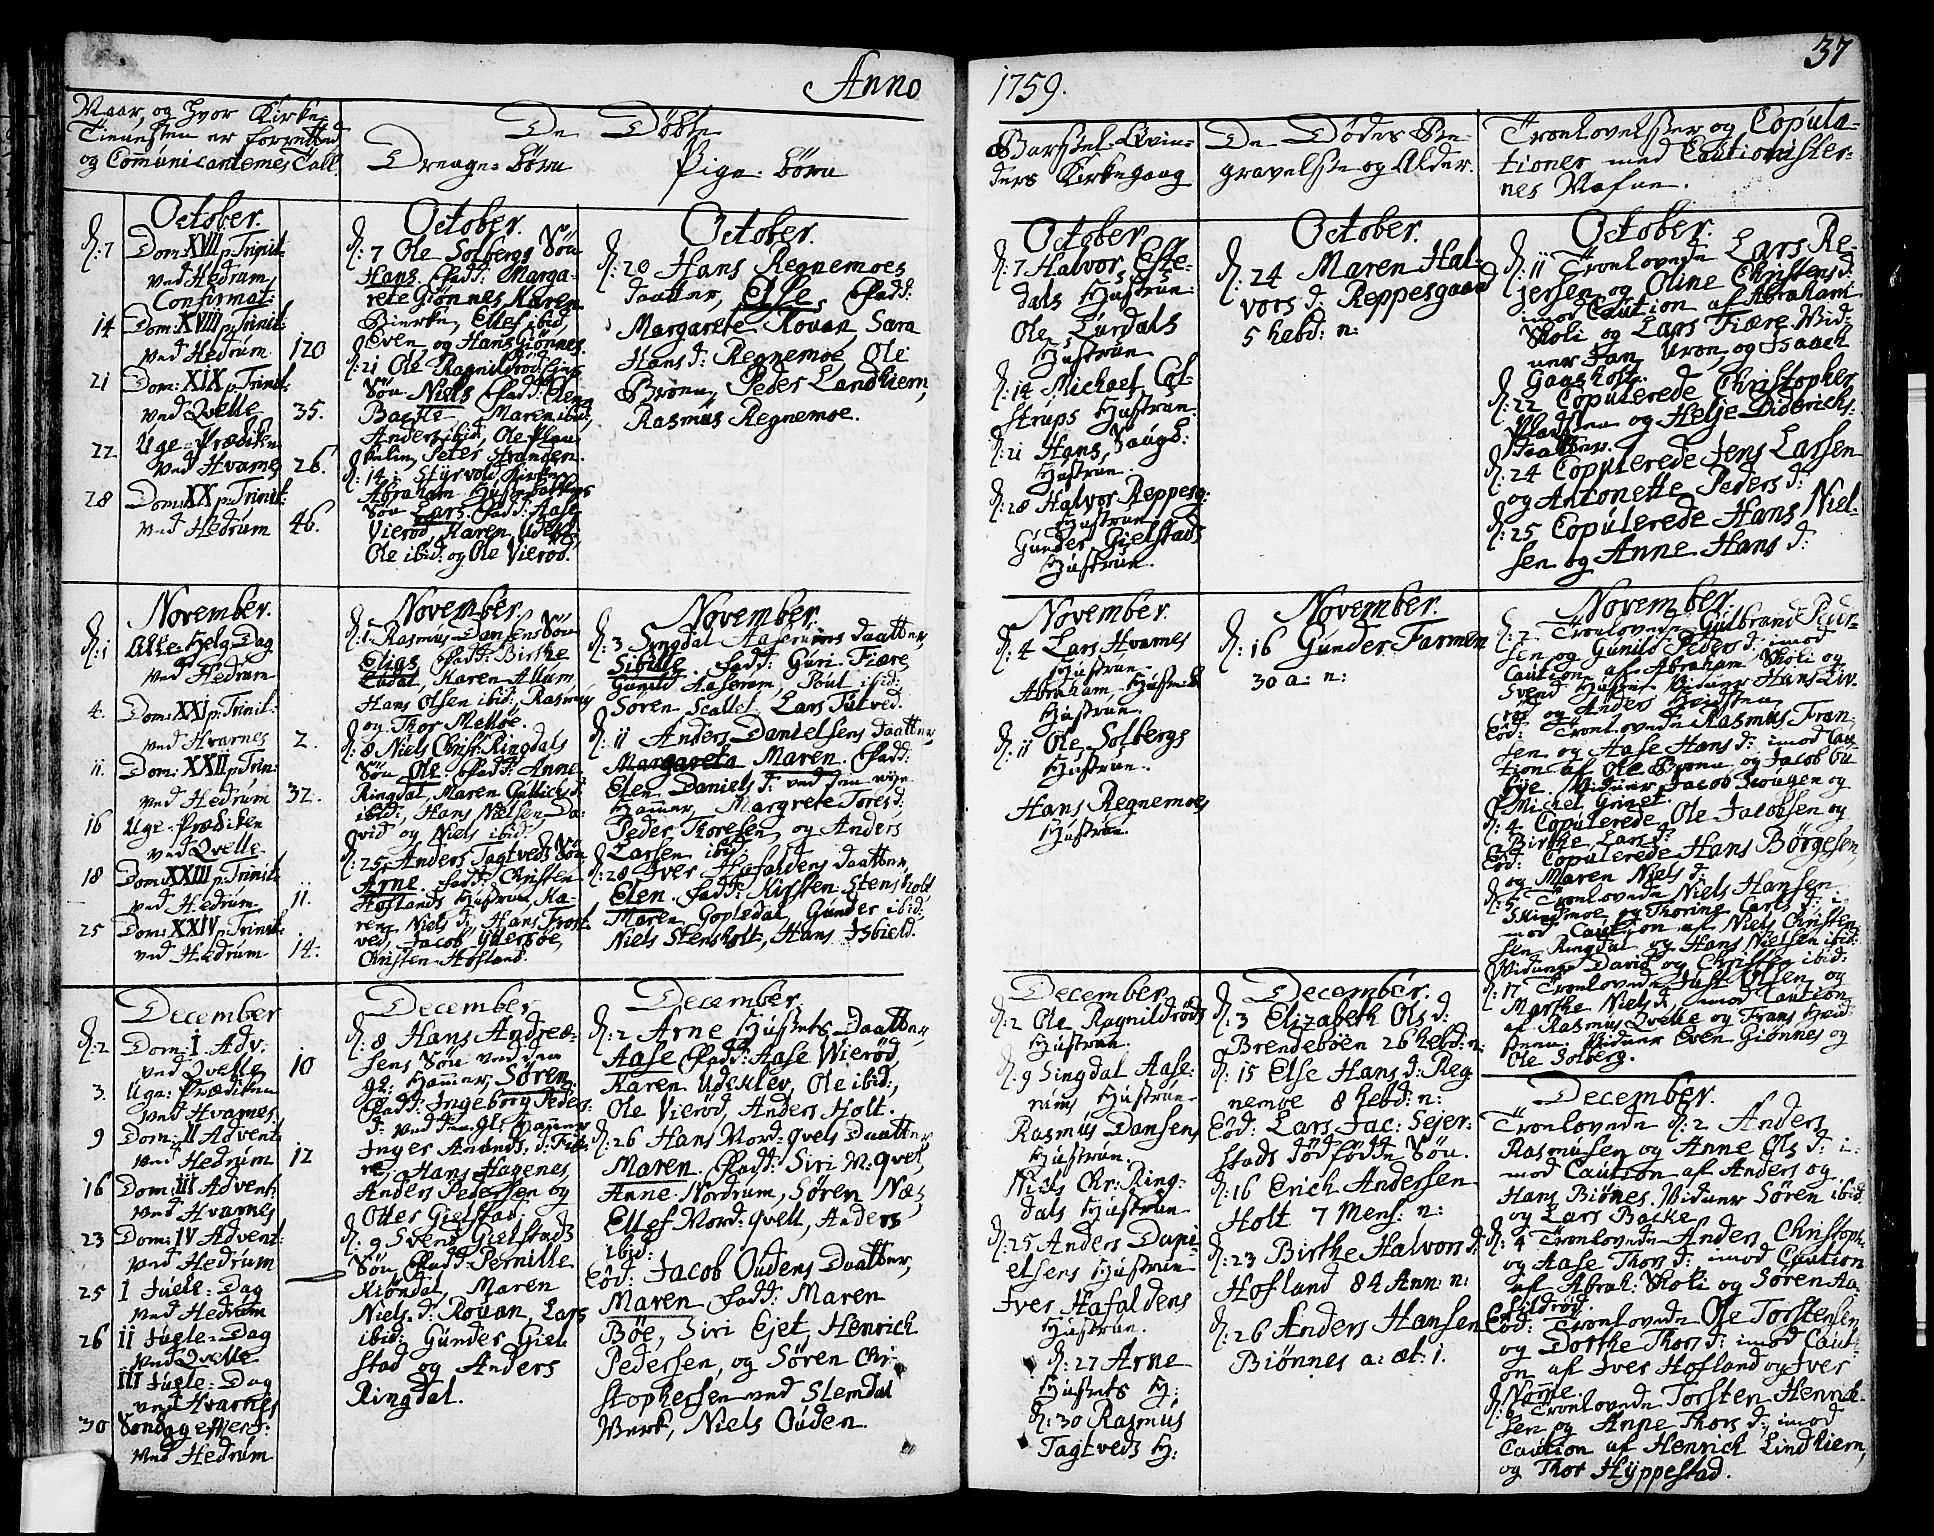 Anno
1759.
37
Naar, og hvor Kirke-
Tienesten er forretted
og Comunicanternes Tall.
De Døbte
Drenge-børn
Pige-børn
Barsel-Qvin-
ders Kirkegang
De Dødes Be-
gravelse og Alder.
Troelovelser og Copula-
tioner med Cautionister-
nes Nafne.
October.
d: 7 Dom: XVII p: Trinit:
ved Hedrum
Confirmat:
14 Dom: XVIII p: Trinit:
ved Hedrum 120
21 Dom: XIX p: Trinit:
ved Qvelle 35.
22 Uge-Prædiken
ved Hvarnes 26.
28 Dom: XX p: Trinit:
ved Hedrum 46.
October.
d: 7 Ole Solbergs Søn
Hans fadd: Marga-
rete Giønnes, Karen
Bierke, Ellef ibid,
Even og Hans Giønnes.
d: 21 Ole Ragnildrød
Søn Niels fadd: Elena
Backe Maren ibid,
Anders ibid, Ole
Peter Stranden.
d: 14: i Styrvold Kirke
Abraham
Søn Lars fadd: Aase
Vierød, Karen Udekl:
Ole ibid: og Ole Vierød.
October.
d: 20 Hans Regnemoes
daatter, Else, fadd:
Margarete Rouan, Sara
Hans d: Regnemoe, Ole
Børen, Peder Landhiem,
Rasmus Regnemoe.
October.
d: 7 Halvor Efte-
dals Hustrue
Ole Lurdals
Hustrue
d: 14 Michael
strups Hustrue.
d: 21 Hans
Hustrue.
d: 28 Halvor Reppesg:
Hustrue
Gunder Gielstads
Hustrue.
October.
d: 24 Maren Hal-
vors d: Reppesgaard
5 hebd: n:
October.
d: 11 Troelovede Lars Re-
jersen og Oline Christens d:
imod Caution af Abraham
Skoli og Lars Fiære Vid-
ner Jan Vron og Isaach
Gaasholt.
d: 22 Copulerede Christopher
og Helje Diderichs:
Daatter.
d: 24 Copulerede Jens Larsen
og Antonette Peders d:
d: 25 Copulerede Hans Niel-
sen og Anne Hans d:
November.
d: 1 Alle-Helg-Dag
ved Hedrum
4. Dom: XXI p: Trinit:
ved Hvarnes 2.
11. Dom: XXII p: Trin:
ved Hedrum 32.
16 Uge-Prædiken
ved Qvelle
18 Dom: XXIII p: Trinit:
ved Hedrum 11.
25 Dom: XXIV p: Trinit:
ved Hedrum 14.
November.
d: 1 Rasmus Dansens Søn
Elias fadd: Birthe
Karen Allum
Hans Olsen ibid: Rasmus
og Thor Melløe.
d: 8 Niels Christ: Ringdals
Søn Ole fadd: Anne
Ringdal, Maren Gullichs d:
ibid:, Hans Nielsen Da-
vid og Niels ibid:
d: 25 Anders Tagtveds Søn
Arne. fadd: Christen
Hoflands Hustrue, Ka-
ren Niels d: Hans Trost-
ved, Jacob Ytersøe,
Christen Hofland.
November.
d: 3 Syngdal Aaserums daatter,
Sibille. fadd: Guri Fiære,
Gunild Aaserum, Poul ibid:
Søren Scallet Lars Tutved.
d: 11 Anders Danielsens daatter,
Margareta Maren. fadd:
Elen Daniels d: ved den nye
Hammer, Margrete Tores d,
Peder Thoresen, og Anders
Larsen ibid:
d: 28 Iver Hafaldens daatter,
Elen. fadd: Kirsten Stensholt
Maren Gopledal, Gunder ibid:
Niels Stensholt, Hans Isbield.
November.
d: 4 Lars Hvarnes
Hustrue.
Abraham
Hustrue.
d: 11 Ole Solbergs
Hustrue.
Hans Regnemoes
Hustrue.
November.
d: 16 Gunder Farmen
30 a: n:
November.
d: 7. Troelovede Gulbrand Peder-
sen og Gunild Peders d: imod
Caution af Abraham Skoli og
Svend Hvidsten Vidner Hans Liv-
rød og Anders Hvidsten
Eod: Troelovede Rasmus Fran-
sen og Aase Hans d: imod Cau-
tion af Ole Børen og Jacob Gu-
Vidner Jacob Skougen og
Michel Grinet.
d: 4 Copulerede Ole Jacobsen og
Birthe Lars d:
Eod: Copulerede Hans Børgesen,
og Maren Niels d:
d: 5 Troelovede Niels Hansen
Skindmoe og Thorine Carls d: i-
mod Caution af Niels Christen-
sen Ringdal og Hans Nielsen ibid:
Vidner David og Christen ibid:
d: 17 Troelovede Just Olsen, og
Marthe Niels d: imod Caution
af Rasmus Qvelle og Frans Hvid-
steen. Vidner Even Giønnes og
Ole Solberg.
December
d: 2 Dom: I Adv:
ved Qvelle 10
3. Uge-Prædiken
ved Hvarnes
9 Dom: II Advent:
ved Hedrum 12
16 Dom: III Advent:
ved Hvarnes
23 Dom: IV Advent:
ved Hedrum
25 I Juele-Dag
ved Hedrum
26 II Juele-Dag
ved Qvelle
III Juele-Dag
ved Hvarnes
30 Søndag
ved Hedrum
December.
d: 8 Hans Andreæ-
sens Søn ved den
gl: Hammer, Søren.
fadd: Ingeborg Peders
d: ved den gl: Hammer
Inger Anands d:
Hans Hagenes,
Anders Pedersen og
Otter Gielstad.
d: 9 Svend Gielstads
Søn, fadd: Pernille
Kiøndal, Maren
Niels d: Rouan, Lars
ibid: Gunder Giel-
stad og Anders
Ringdal.
December.
d: 2 Arne Husets Daatter,
Aase fadd: Aase Wierød,
Karen Udeklev, Ole ibid:,
Ole Vierød, Anders Holt.
d: 26 Hans Nord-qvels Daatter,
Maren. fadd: Siri N: qvel,
Anne Nordrum, Søren Næs
Ellef Nord-qvell, Anders
ibid:
Eod: Jacob Oudens Daatter,
Maren fadd: Maren
Bøe, Siri Ejet, Henrich
Pedersen, og Søren Chri-
stophersen ved Slemdal
Verk, Niels Ouden.
December.
d: 2 Ole Ragnildrøds
Hustrue.
d: 9 Singdal Aase-
rums Hustrue.
Rasmus Dansens
Hustrue.
Niels Chr: Ring-
dals Hustrue
d: 25 Anders Dani-
elsens Hustrue
Iver Hafaldens
Hustrue.
d: 27 Arne
Husets H:
d: 30 Rasmus
Tagtveds H:
December.
d: 3 Elizabeth Ols d:
Brendebøen 26 hebd: n:
d: 15 Else Hans d: Reg-
nemoe 8 hebd: n:
Eod: Lars Jac: Sejer-
stads dødfødde Søn.
d: 16 Erich Andersen
Holt 7 Mens: n:
d: 23 Birthe Halvors d:
Hofland 84 Ann: n:
d: 26 Anders Hansen
Biønnes a: æt: 1.
December.
Troelovede d: 2 Anders
Rasmusen og Anne Ols d: i-
mod Caution af Anders og
Hans Biønes. Vidner Søren ibid
og Lars Backe
d: 4 Troelovede Anders Christoph:
og Aase Thors d: imod Caution
af Abrah: Skoli og Søren Aa-
sildrød.
Eod: Troelovede Ole Torstensen
og Dorthe Thors d: imod Cauti-
on af Iver Hofland og Iver
Nomme.
d: 6 Troelovede Torsten Henrik-
sen og Anne Thors d: imod
Caution af Henrich Lindhiem,
og Thor Hyppestad.